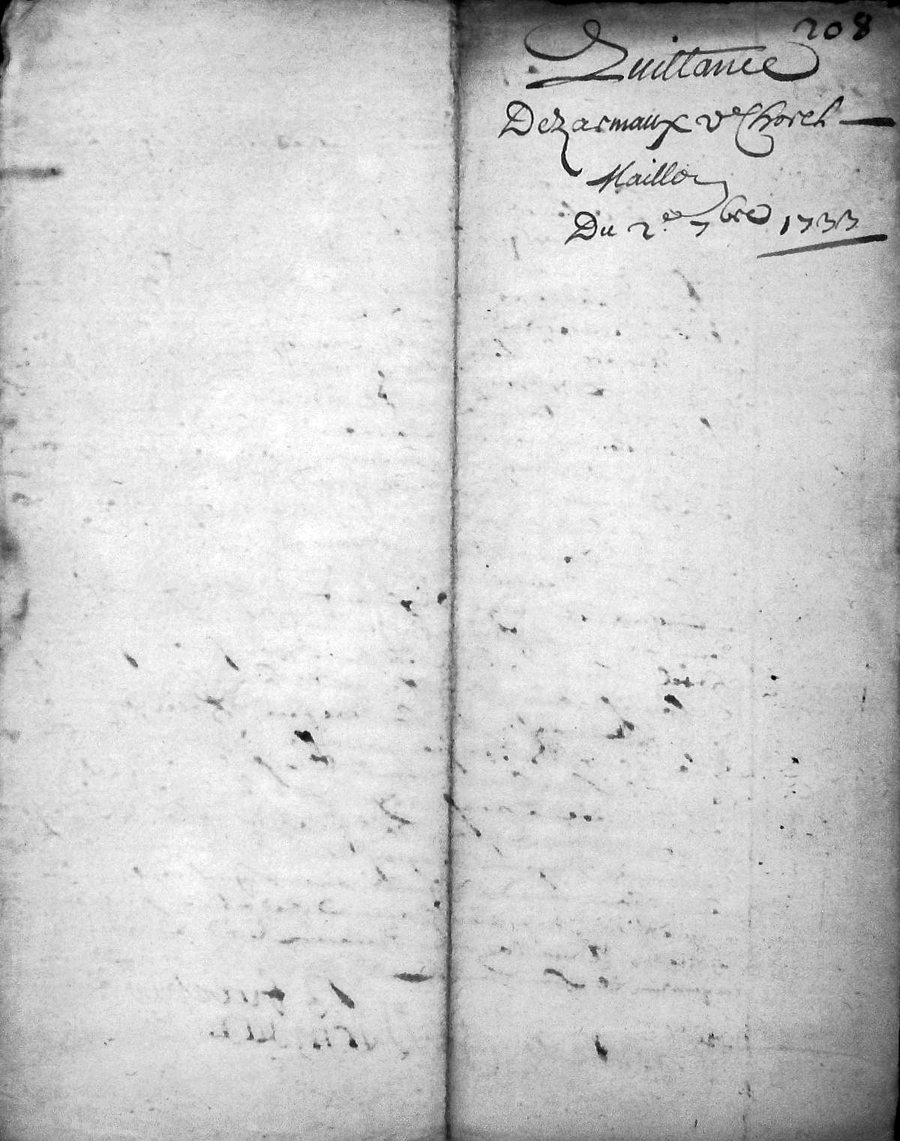 208
Quittance
Dezarmaux ve Chorel
Maillou
Du 2e 7bre 1733